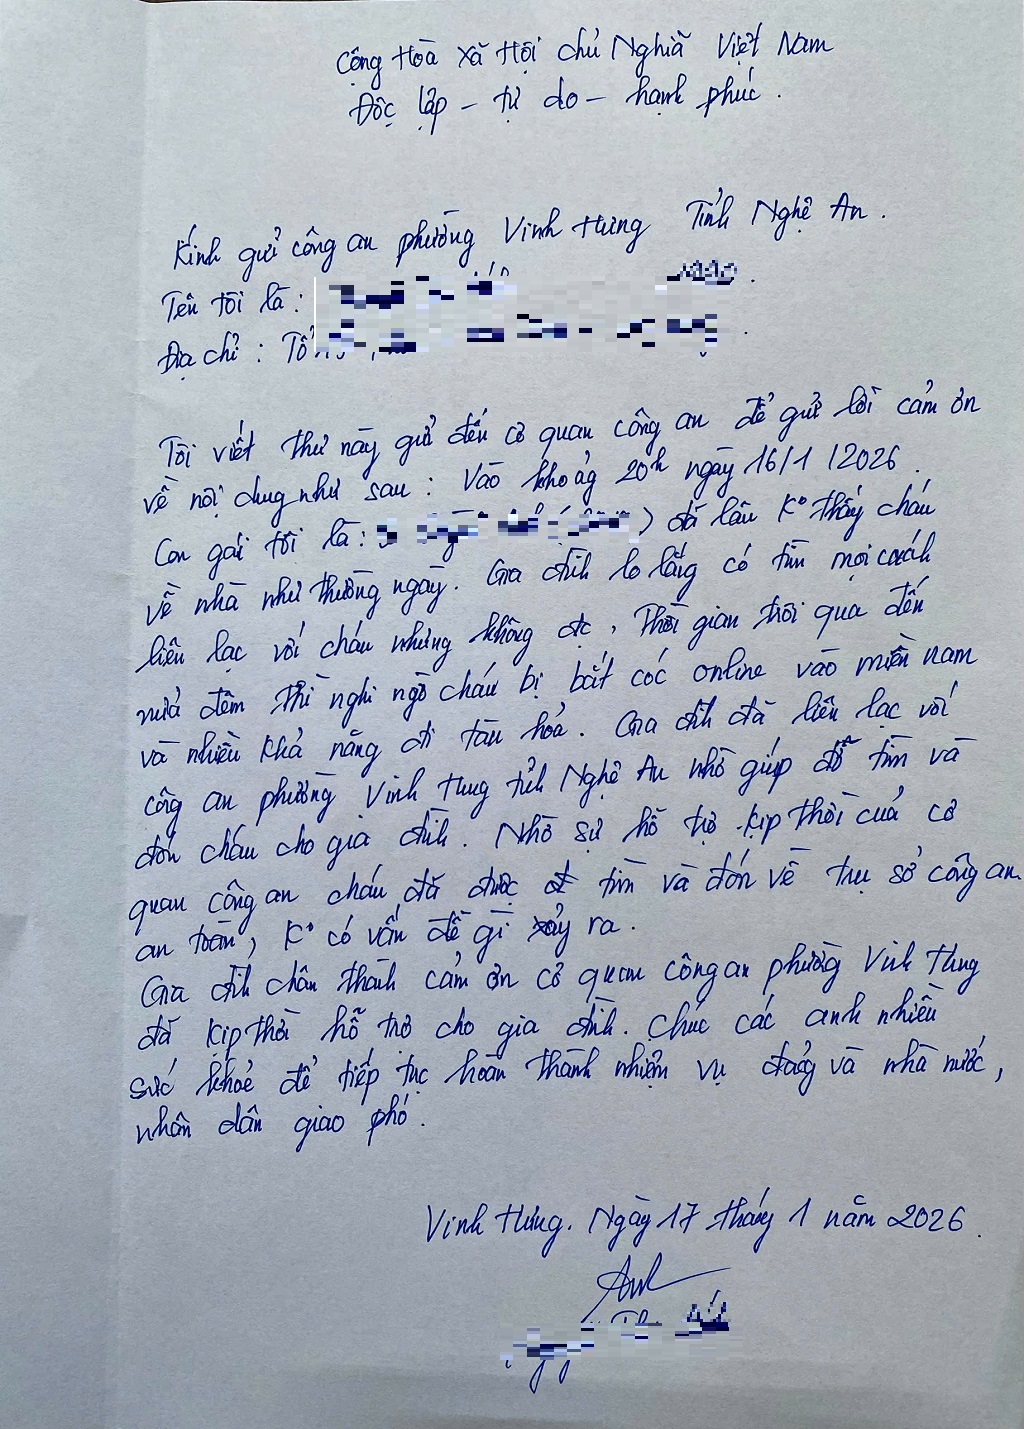 Cộng Hòa Xã Hội chủ Nghĩa Việt Nam
Độc lập - tự do - hạnh phúc.
Kính gửi công an phường Vinh Hưng Tỉnh Nghệ An.
Tên tôi là:
Địa chỉ: Tổ
Tôi viết thư này gửi đến cơ quan công an để gửi lời cảm ơn
về nội dung như sau: Vào khoảng 20h ngày 16/1/2026.
Con gái tôi là: ) đã lâu K° thấy cháu
về nhà như thường ngày. Gia đình lo lắng có tìm mọi cách
liên lạc với cháu nhưng không đc, Thời gian trôi qua đến
nửa đêm thì nghi ngờ cháu bị bắt cóc online vào miền nam
và nhiều khả năng đi tàu hỏa. Gia đình đã liên lạc với
công an phường Vinh Hưng tỉnh Nghệ An nhờ giúp đỡ tìm và
đón cháu cho gia đình. Nhờ sự hỗ trợ kịp thời của cơ
quan công an cháu đã được tìm và đón về trụ sở công an
an toàn, K° có vấn đề gì xảy ra.
Gia đình chân thành cảm ơn cơ quan công an phường Vinh Hưng
đã kịp thời hỗ trợ cho gia đình. Chúc các anh nhiều
sức khỏe để tiếp tục hoàn thành nhiệm vụ đảng và nhà nước,
nhân dân giao phó.
Vinh Hưng. Ngày 17 tháng 1 năm 2026.